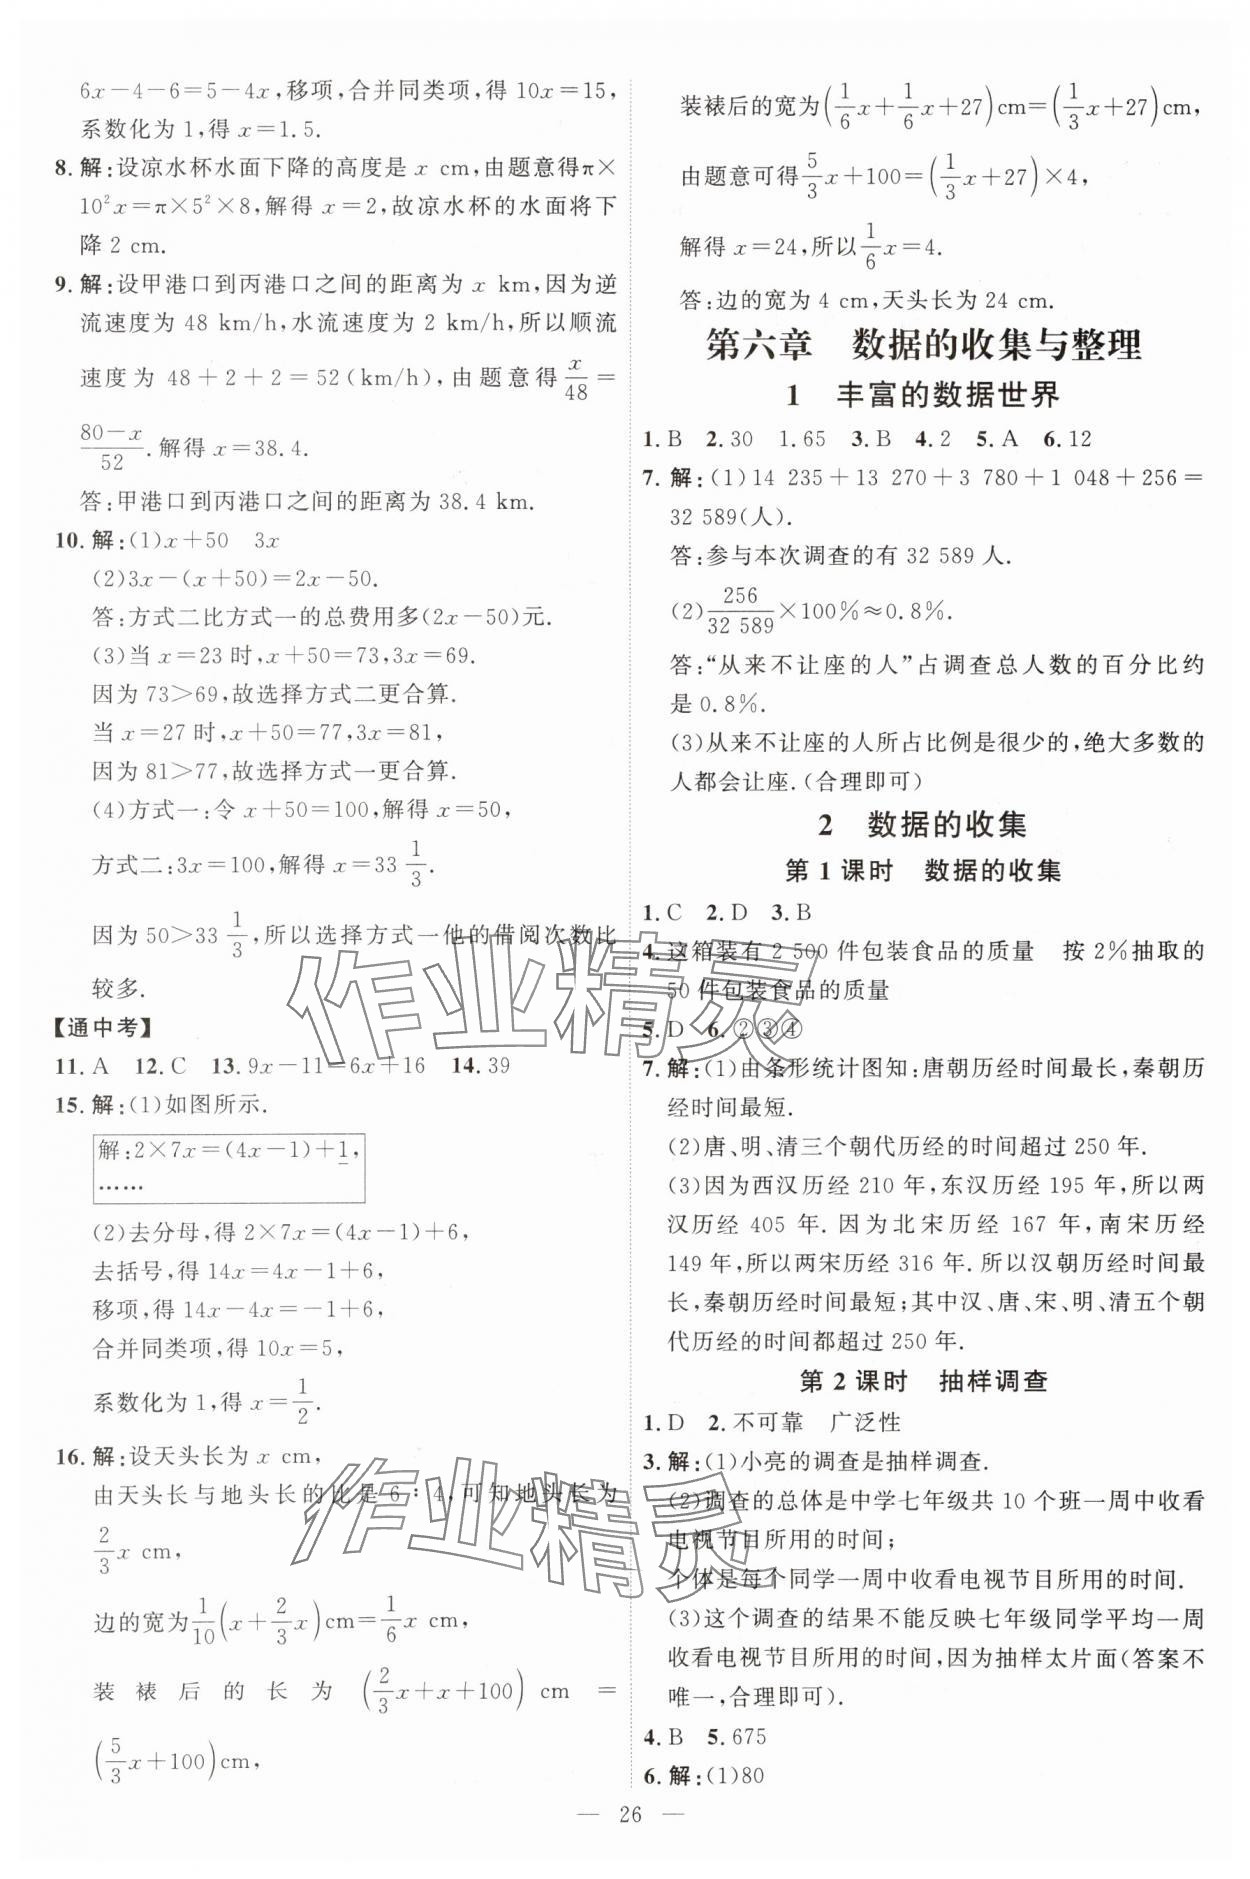 6x－4－6＝5－4x,移项,合并同类项,得 10x＝15,
系数化为 1,得 x＝1.5.
8. 解:设凉水杯水面下降的高度是 x cm,由题意得π×
10²x＝π×5²×8,解得 x＝2,故凉水杯的水面将下
降 2 cm.
9. 解:设甲港口到丙港口之间的距离为 x km,因为逆
流速度为 48 km/h,水流速度为 2 km/h,所以顺流
速度为 48＋2＋2＝52(km/h),由题意得 x/48＝
(80－x)/52.解得 x＝38.4.
答:甲港口到丙港口之间的距离为 38.4 km.
10. 解:(1)x＋50　3x
(2)3x－(x＋50)＝2x－50.
答:方式二比方式一的总费用多(2x－50)元.
(3)当 x＝23 时,x＋50＝73,3x＝69.
因为 73＞69,故选择方式二更合算.
当 x＝27 时,x＋50＝77,3x＝81,
因为 81＞77,故选择方式一更合算.
(4)方式一:令 x＋50＝100,解得 x＝50,
方式二:3x＝100,解得 x＝33 1/3.
因为 50＞33 1/3,所以选择方式一他的借阅次数比
较多.
【通中考】
11. A　12. C　13. 9x－11＝6x＋16　14. 39
15. 解:(1)如图所示.
解:2×7x＝(4x－1)＋1,
……
(2)去分母,得 2×7x＝(4x－1)＋6,
去括号,得 14x＝4x－1＋6,
移项,得 14x－4x＝－1＋6,
合并同类项,得 10x＝5,
系数化为 1,得 x＝1/2.
16. 解:设天头长为 x cm,
由天头长与地头长的比是 6∶4,可知地头长为
2/3 x cm,
边的宽为 1/10(x＋2/3 x)cm＝1/6 x cm,
装裱后的长为(2/3 x＋x＋100)cm＝
(5/3 x＋100)cm,
装裱后的宽为(1/6 x＋1/6 x＋27)cm＝(1/3 x＋27)cm,
由题意可得 5/3 x＋100＝(1/3 x＋27)×4,
解得 x＝24,所以 1/6 x＝4.
答:边的宽为 4 cm,天头长为 24 cm.
第六章　数据的收集与整理
1　丰富的数据世界
1. B　2. 30　1.65　3. B　4. 2　5. A　6. 12
7. 解:(1)14 235＋13 270＋3 780＋1 048＋256＝
32 589(人).
答:参与本次调查的有 32 589 人.
(2)256/32 589×100%≈0.8%.
答:“从来不让座的人”占调查总人数的百分比约
是 0.8%.
(3)从来不让座的人所占比例是很少的,绝大多数的
人都会让座.(合理即可)
2　数据的收集
第 1 课时　数据的收集
1. C　2. D　3. B
4. 这箱装有 2 500 件包装食品的质量　按 2%抽取的
50 件包装食品的质量
5. D　6. ②③④
7. 解:(1)由条形统计图知:唐朝历经时间最长,秦朝历
经时间最短.
(2)唐、明、清三个朝代历经的时间超过 250 年.
(3)因为西汉历经 210 年,东汉历经 195 年,所以两
汉历经 405 年.因为北宋历经 167 年,南宋历经
149 年,所以两宋历经 316 年.所以汉朝历经时间最
长,秦朝历经时间最短;其中汉、唐、宋、明、清五个朝
代历经的时间都超过 250 年.
第 2 课时　抽样调查
1. D　2. 不可靠　广泛性
3. 解:(1)小亮的调查是抽样调查.
(2)调查的总体是中学七年级共 10 个班一周中收看
电视节目所用的时间;
个体是每个同学一周中收看电视节目所用的时间.
(3)这个调查的结果不能反映七年级同学平均一周
收看电视节目所用的时间,因为抽样太片面(答案不
唯一,合理即可).
4. B　5. 675
6. 解:(1)80
— 26 —
作业精灵
作业精灵